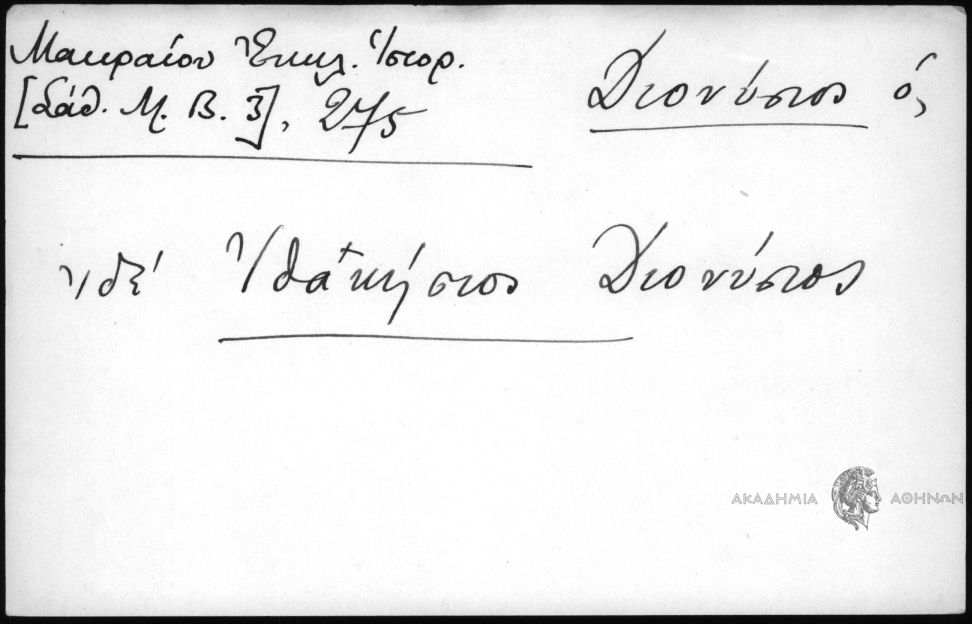 Μακραίου Ἐκκλ. Ἱστορ.
[Σάθ. Μ. Β. 3], 275
Διονύσιος ὁ,
ἰδέ Ἰθακήσιος Διονύσιος
ΑΚΑΔΗΜΙΑ ΑΘΗΝΩΝ